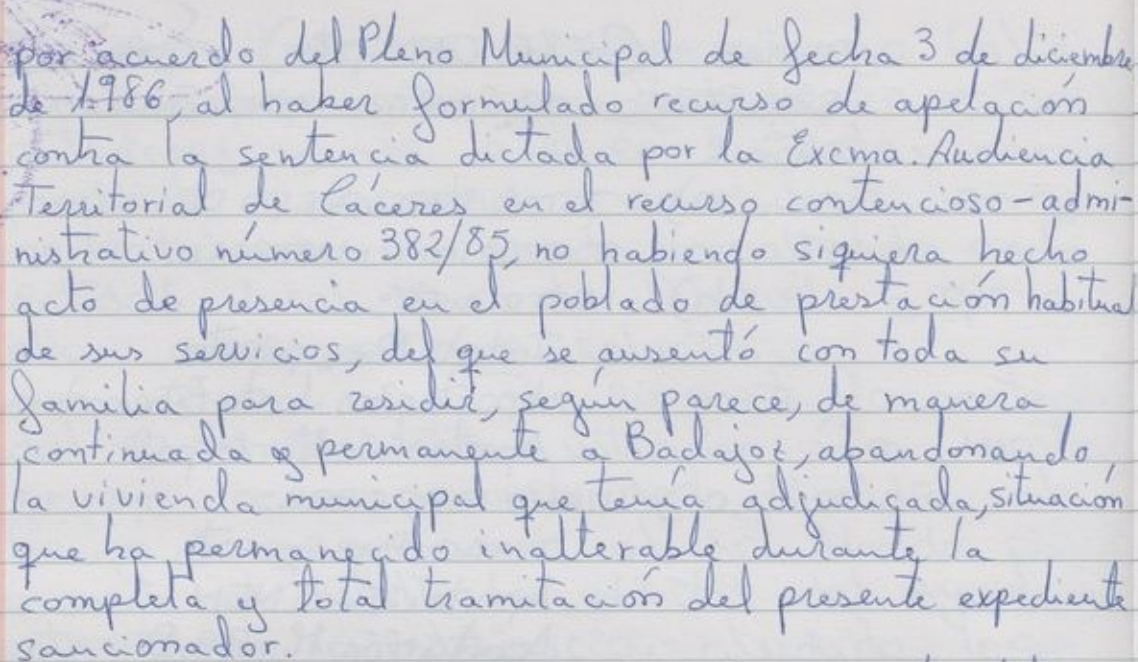 por acuerdo del Pleno Municipal de fecha 3 de diciembre
de 1986, al haber formulado recurso de apelación
contra la sentencia dictada por la Excma. Audiencia
Territorial de Cáceres en el recurso contencioso-admi-
nistrativo número 382/85, no habiendo siquiera hecho
acto de presencia en el poblado de prestación habitual
de sus servicios, del que se ausentó con toda su
familia para residir, según parece, de manera
continuada y permanente a Badajoz, abandonando
la vivienda municipal que tenía adjudicada, situación
que ha permanecido inalterable durante la
completa y total tramitación del presente expediente
sancionador.